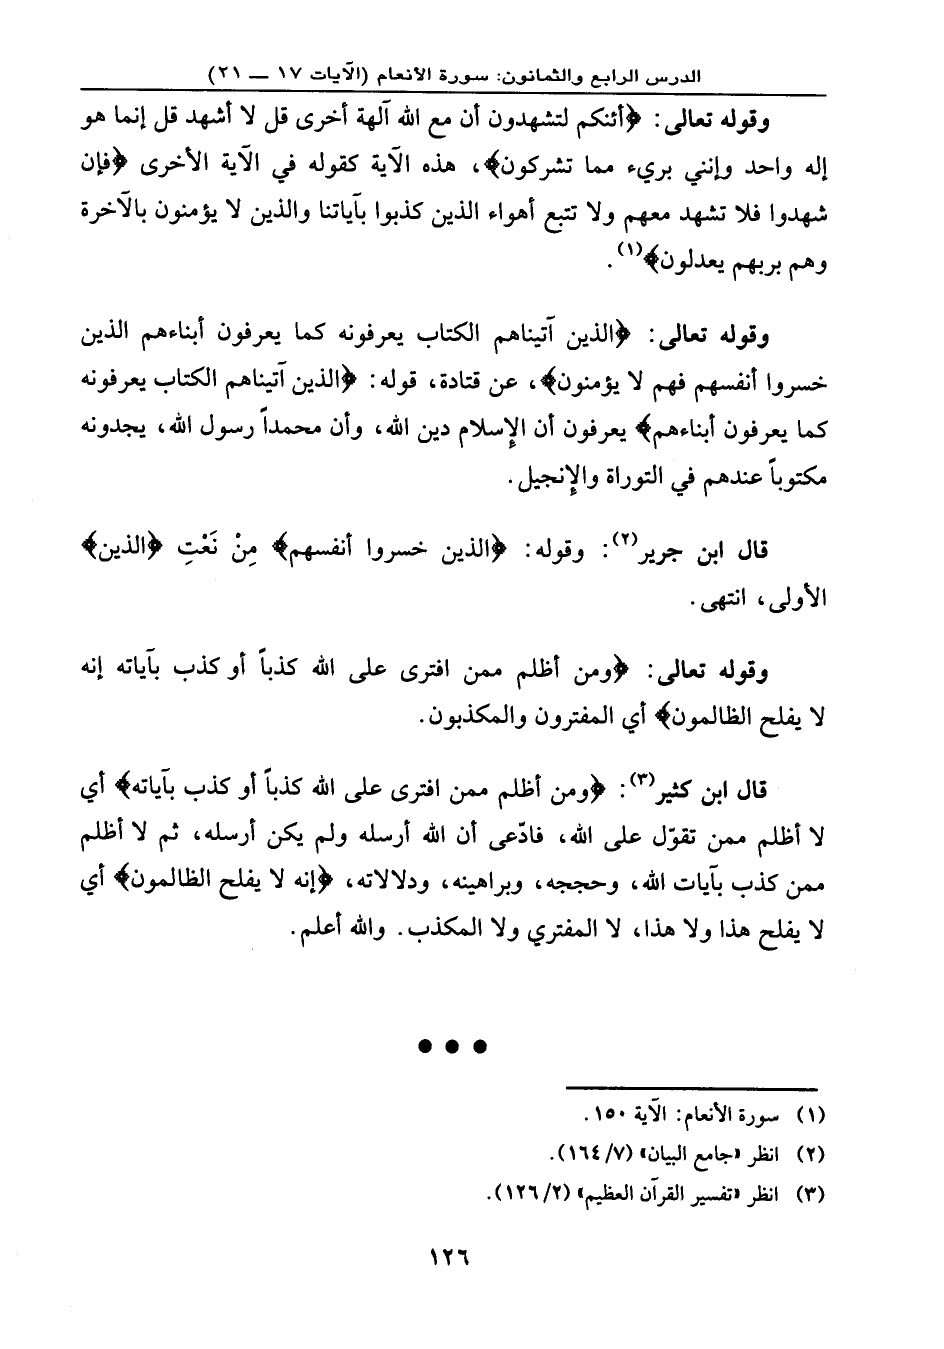 الدرس الرابع والثمانون: سورة الأنعام (الآيات ١٧ — ٢١)
وقوله تعالى: ﴿أئنكم لتشهدون أن مع الله آلهة أخرى قل لا أشهد قل إنما هو
إله واحد وإنني بريء مما تشركون﴾، هذه الآية كقوله في الآية الأخرى ﴿فإن
شهدوا فلا تشهد معهم ولا تتبع أهواء الذين كذبوا بآياتنا والذين لا يؤمنون بالآخرة
وهم بربهم يعدلون﴾(١).
وقوله تعالى: ﴿الذين آتيناهم الكتاب يعرفونه كما يعرفون أبناءهم الذين
خسروا أنفسهم فهم لا يؤمنون﴾، عن قتادة، قوله: ﴿الذين آتيناهم الكتاب يعرفونه
كما يعرفون أبناءهم﴾ يعرفون أن الإسلام دين الله، وأن محمداً رسول الله، يجدونه
مكتوباً عندهم في التوراة والإنجيل.
قال ابن جرير(٢): وقوله: ﴿الذين خسروا أنفسهم﴾ مِنْ نَعْتِ ﴿الذين﴾
الأولى، انتهى.
وقوله تعالى: ﴿ومن أظلم ممن افترى على الله كذباً أو كذب بآياته إنه
لا يفلح الظالمون﴾ أي المفترون والمكذبون.
قال ابن كثير(٣): ﴿ومن أظلم ممن افترى على الله كذباً أو كذب بآياته﴾ أي
لا أظلم ممن تقوّل على الله، فادّعى أن الله أرسله ولم يكن أرسله، ثم لا أظلم
ممن كذب بآيات الله، وحججه، وبراهينه، ودلالاته، ﴿إنه لا يفلح الظالمون﴾ أي
لا يفلح هذا ولا هذا، لا المفتري ولا المكذب. والله أعلم.
● ● ●
(١) سورة الأنعام: الآية ١٥٠.
(٢) انظر «جامع البيان» (٧/ ١٦٤).
(٣) انظر «تفسير القرآن العظيم» (٢/ ١٢٦).
١٢٦